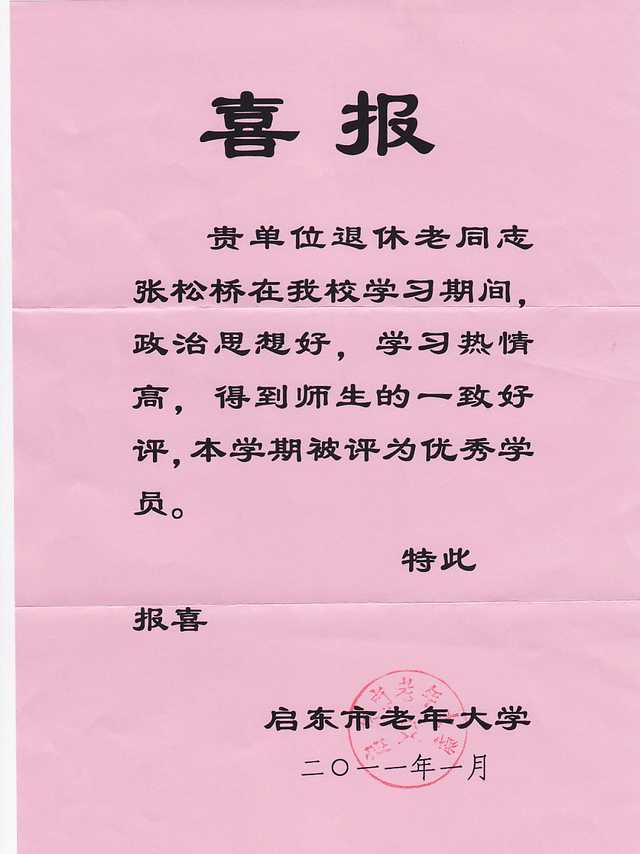 喜报
贵单位退休老同志
张松桥在我校学习期间，
政治思想好，学习热情
高，得到师生的一致好
评，本学期被评为优秀学
员。
特此
报喜
启东市老年大学
二〇一一年一月